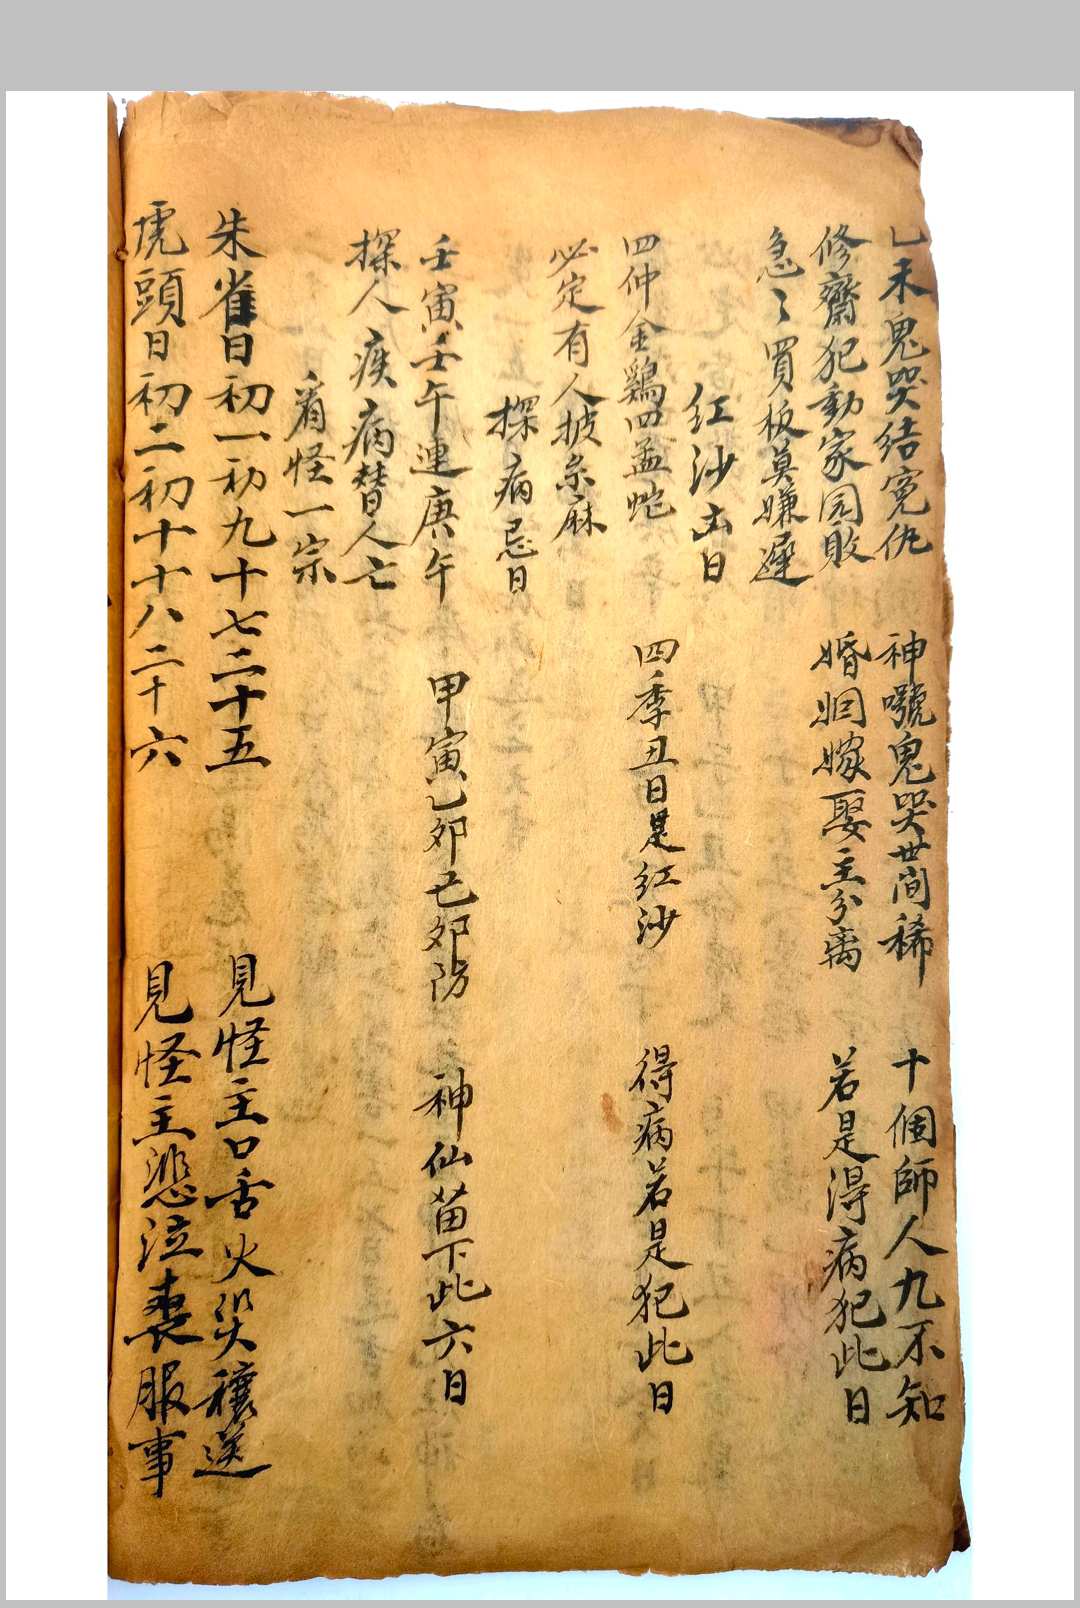 乙未鬼哭結寃仇　神嚎鬼哭世间稀　十個師人九不知
修齋犯動家园敗　婚姻嫁娶主分离　若是得病犯此日
急〻買板莫嫌遲
紅沙凶日
四仲金鷄四孟蛇　四季丑日是紅沙　得病若是犯此日
必定有人披糸麻
探病忌日
壬寅壬午連庚午　甲寅乙郊己郊防　神仙留下此六日
探人疾病替人亡
看怪一宗
朱雀日初一初九十七二十五　見怪主口舌火災穰送
虎頭日初二初十十八二十六　見怪主悲泣喪服事